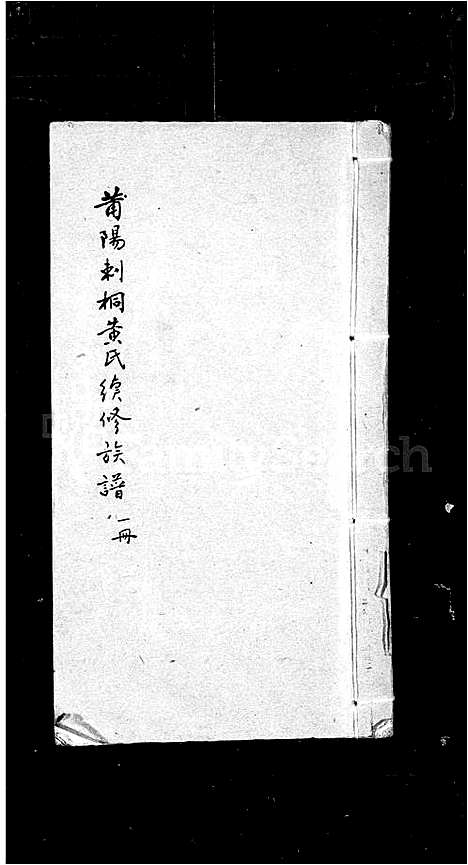 莆陽刺桐黄氏續修族譜
一冊
FamilySearch